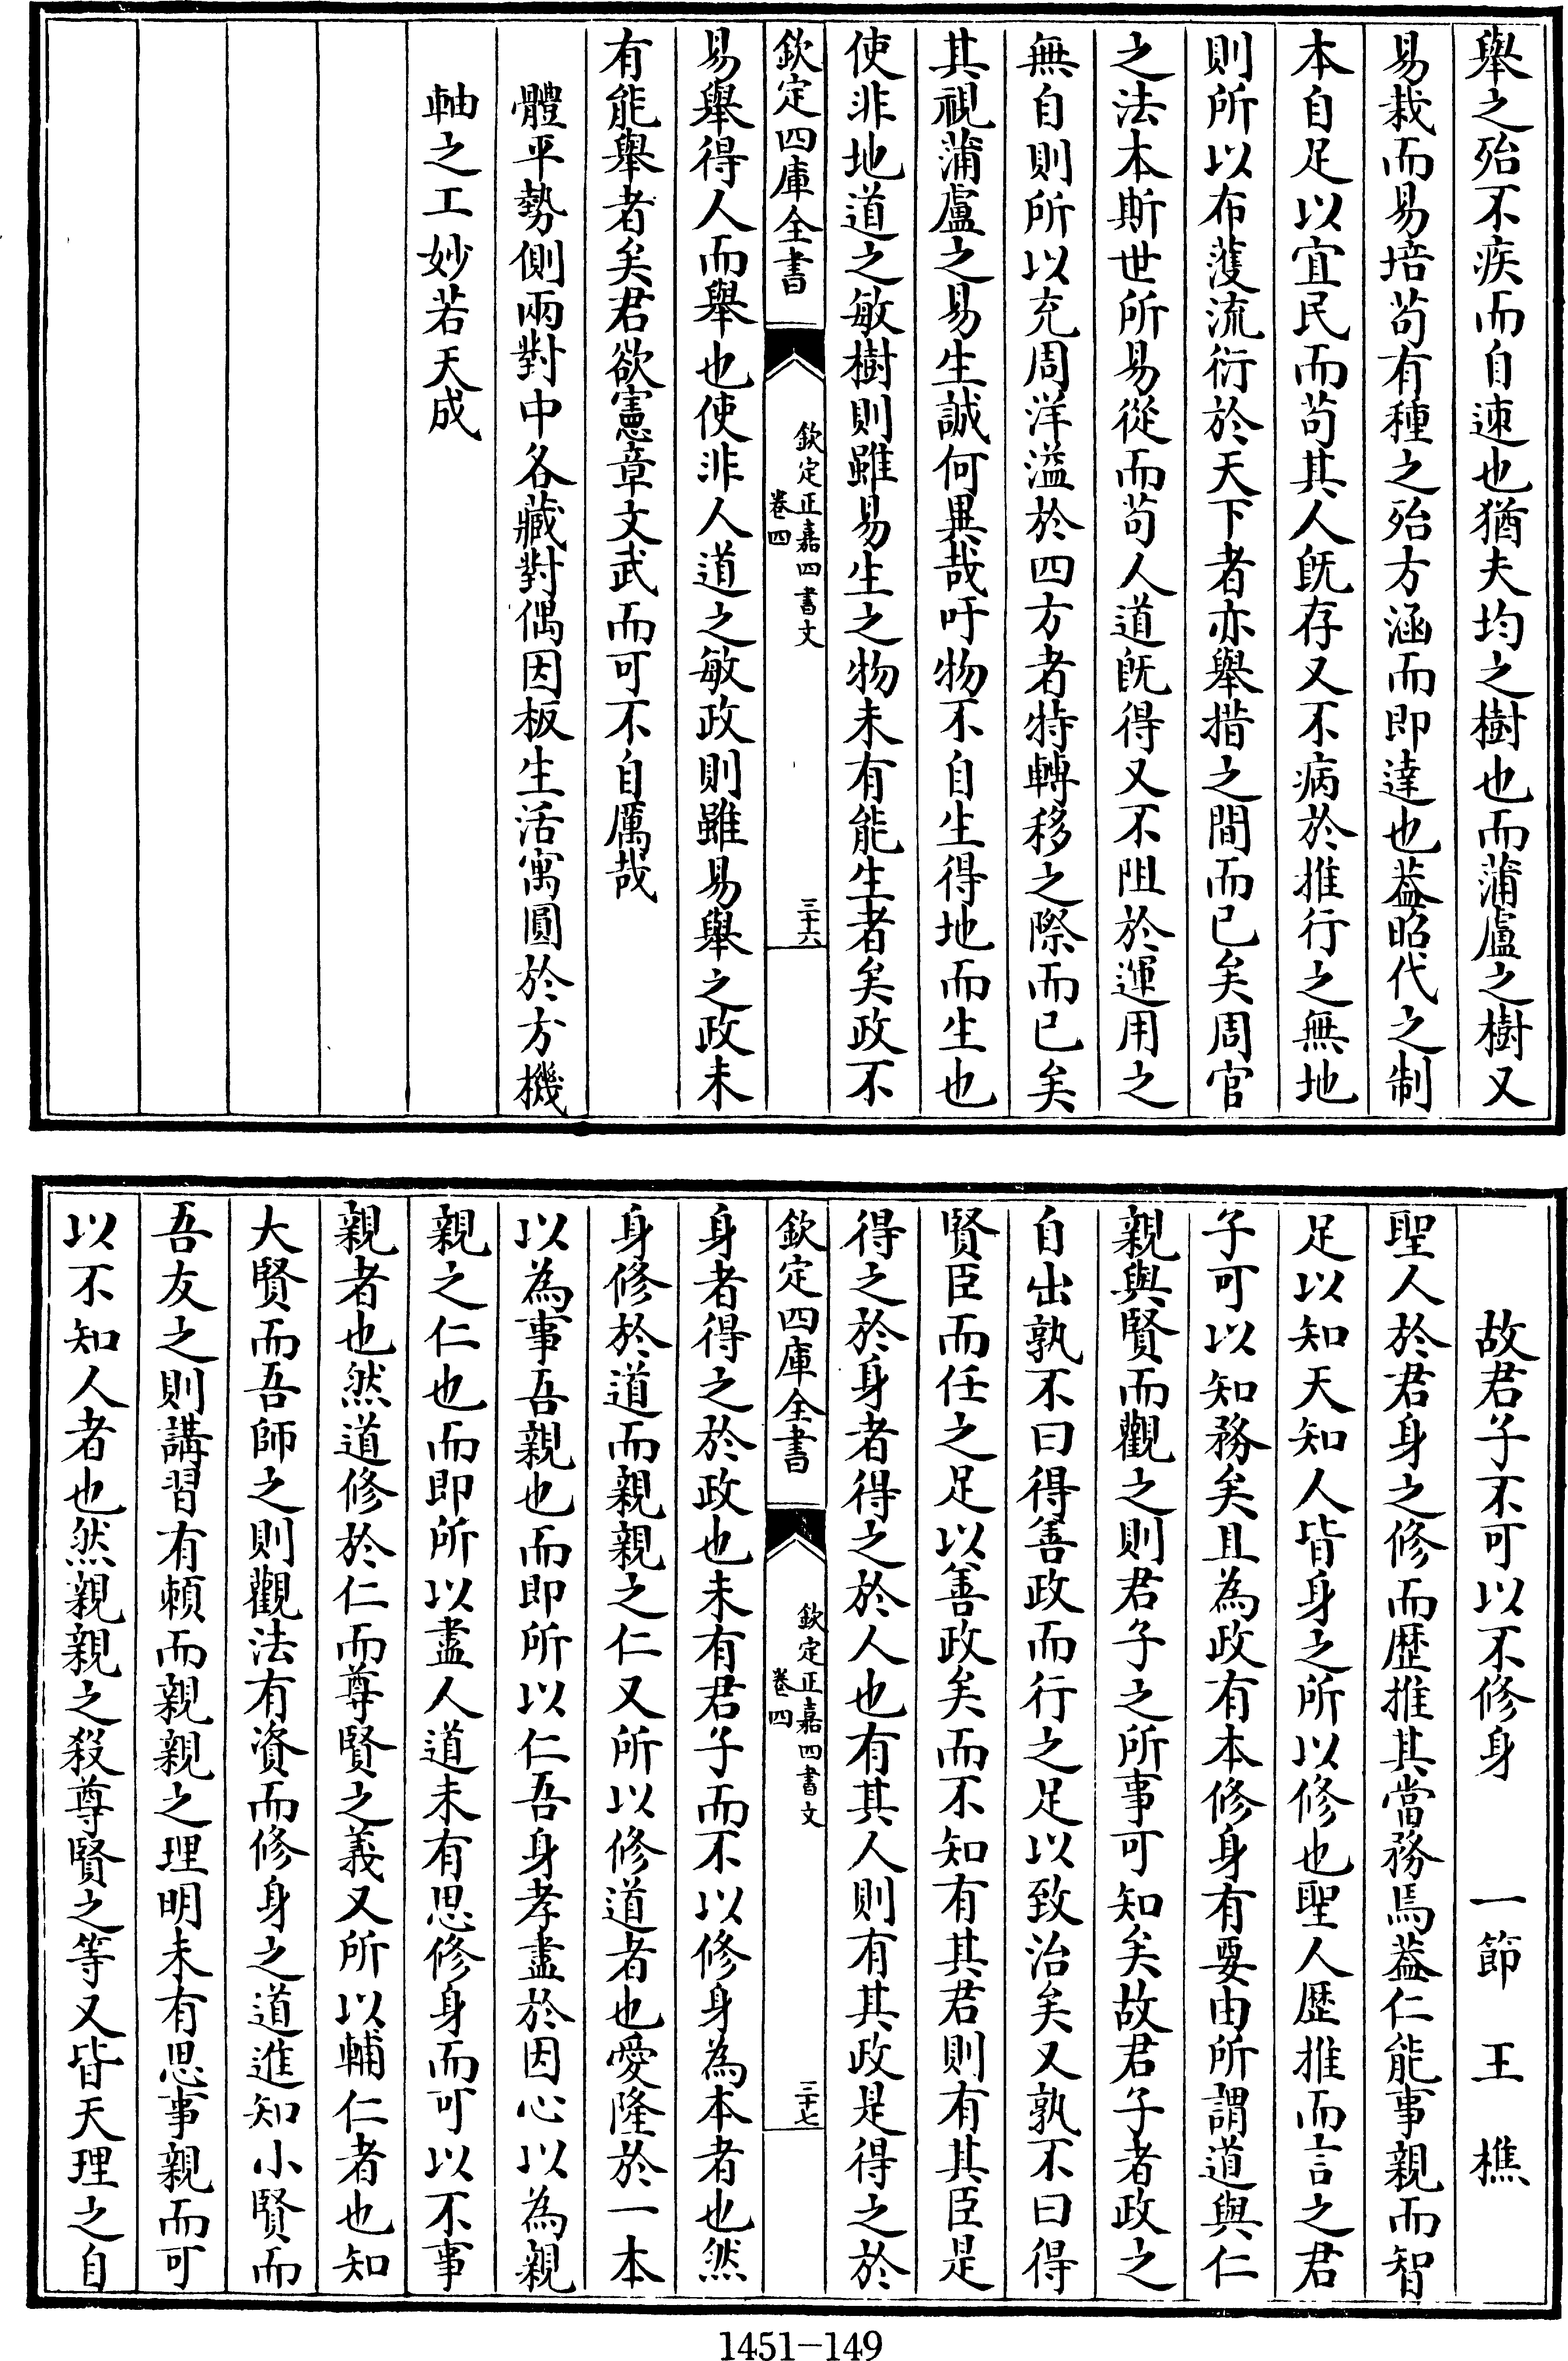 舉之殆不疾而自速也猶夫均之樹也而蒲盧之樹又
易栽而易培茍有種之殆方涵而即達也葢昭代之制
本自足以宜民而茍其人既存又不病於推行之無地
則所以布濩流衍於天下者亦舉措之間而已矣周官
之法本斯世所易從而茍人道既得又不阻於運用之
無自則所以充周洋溢於四方者特轉移之際而已矣
其視蒲盧之易生誠何異哉吁物不自生得地而生也
使非地道之敏樹則雖易生之物未有能生者矣政不
欽定四庫全書
欽定正嘉四書文
卷四
三十六
易舉得人而舉也使非人道之敏政則雖易舉之政未
有能舉者矣君欲憲章文武而可不自厲哉
體平勢側兩對中各藏對偶因板生活寓圓於方機
軸之工妙若天成
故君子不可以不修身 一節 王樵
聖人於君身之修而歴推其當務焉葢仁能事親而智
足以知天知人皆身之所以修也聖人歴推而言之君
子可以知務矣且為政有本修身有要由所謂道與仁
親與賢而觀之則君子之所事可知矣故君子者政之
自出孰不曰得善政而行之足以致治矣又孰不曰得
賢臣而任之足以善政矣而不知有其君則有其臣是
得之於身者得之於人也有其人則有其政是得之於
欽定四庫全書
欽定正嘉四書文
卷四
三十七
身者得之於政也未有君子而不以修身為本者也然
身修於道而親親之仁又所以修道者也愛隆於一本
以為事吾親也而即所以仁吾身孝盡於因心以為親
親之仁也而即所以盡人道未有思修身而可以不事
親者也然道修於仁而尊賢之義又所以輔仁者也知
大賢而吾師之則觀法有資而修身之道進知小賢而
吾友之則講習有頼而親親之理明未有思事親而可
以不知人者也然親親之殺尊賢之等又皆天理之自
1451-149